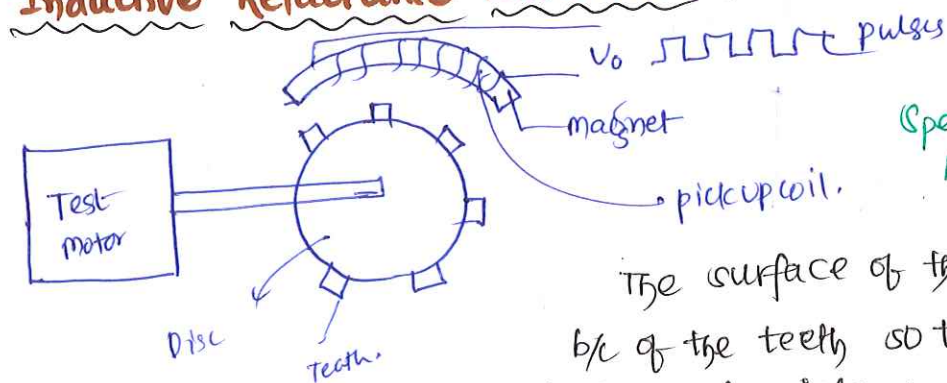 Inductive Reluctance
V₀ pulses
magnet
pickup coil.
Test
motor
Disc
Teath.
The surface of
b/c of the teeth so